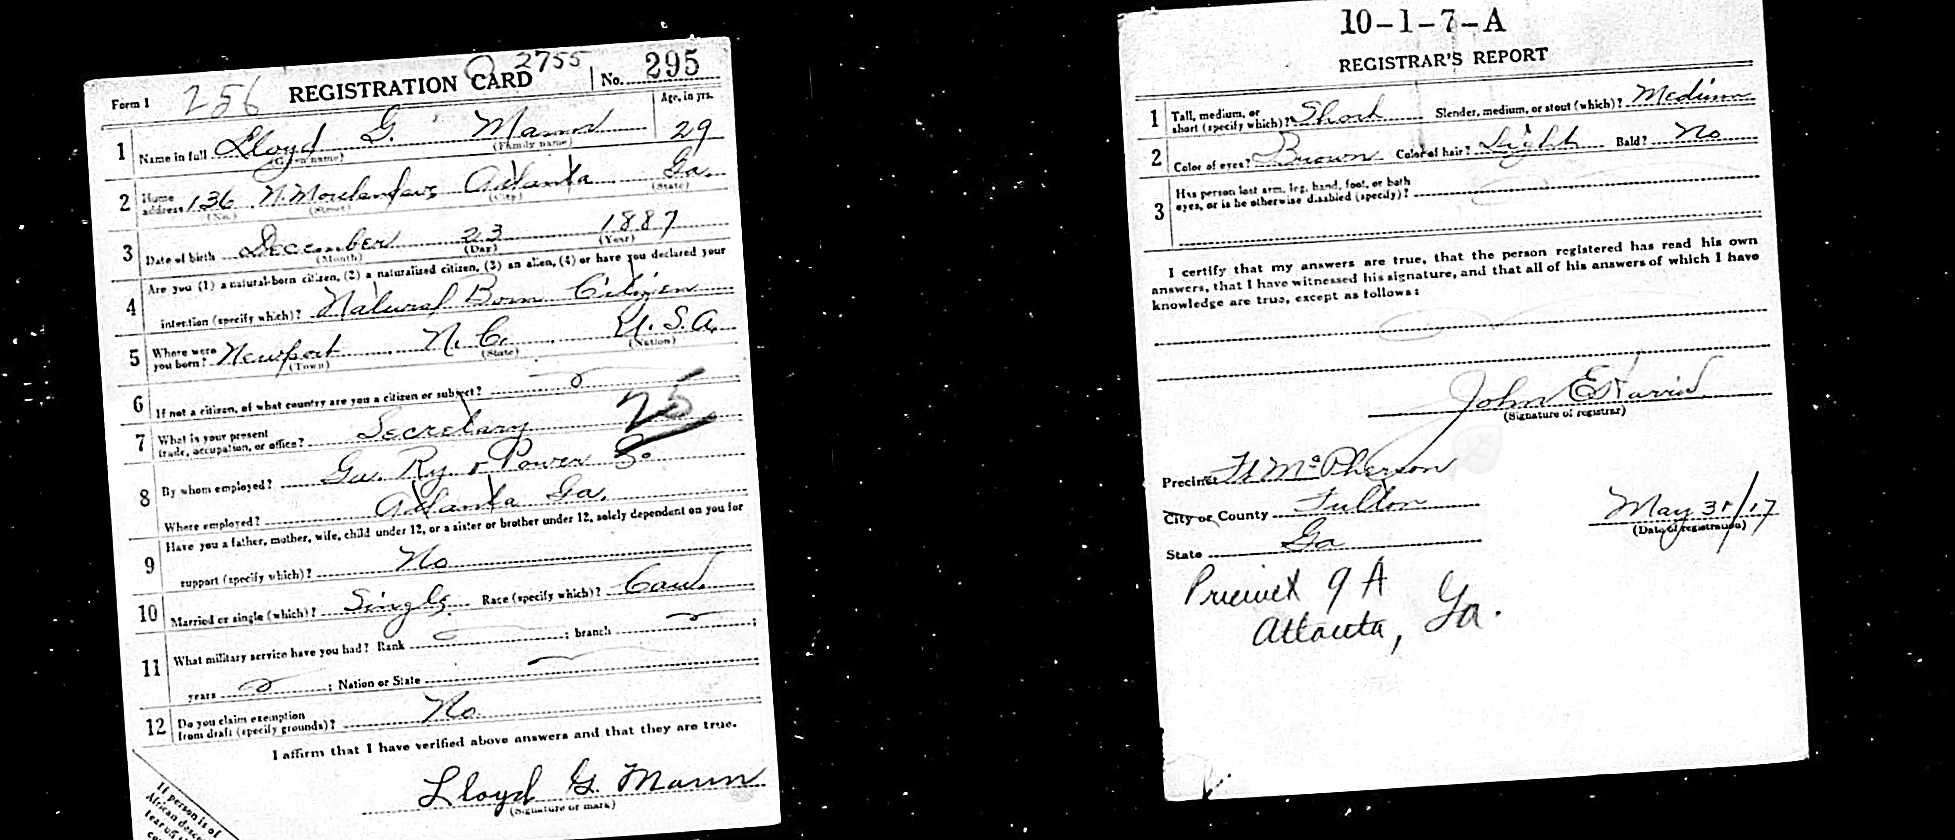 Form 1 256 REGISTRATION CARD 2755 No. 295
Age, in yrs.
1 Name in full Lloyd G. Mann 29
(Given name) (Family name)
2 Home address 136 N. Moreland ave Atlanta Ga.
(No.) (Street) (City) (State)
3 Date of birth December 23 1887
(Month) (Day) (Year)
Are you (1) a natural-born citizen, (2) a naturalized citizen, (3) an alien, (4) or have you declared your
4 intention (specify which)? Natural Born Citizen
5 Where were you born? Newport N. C. U. S. A.
(Town) (State) (Nation)
6 If not a citizen, of what country are you a citizen or subject?
7 What is your present trade, occupation, or office? Secretary 25
8 By whom employed? Ga. Ry & Power Co
Where employed? Atlanta Ga.
Have you a father, mother, wife, child under 12, or a sister or brother under 12, solely dependent on you for
9 support (specify which)? No
10 Married or single (which)? Single Race (specify which)? Cau
11 What military service have you had? Rank ; branch ;
years ; Nation or State
12 Do you claim exemption from draft (specify grounds)? No
I affirm that I have verified above answers and that they are true.
Lloyd G. Mann
(Signature or mark)
If person is of
African desc
tear off
10-1-7-A
REGISTRAR'S REPORT
1 Tall, medium, or short (specify which)? Short Slender, medium, or stout (which)? Medium
2 Color of eyes? Brown Color of hair? Light Bald? No
3 Has person lost arm, leg, hand, foot, or both eyes, or is he otherwise disabled (specify)?
I certify that my answers are true, that the person registered has read his own
answers, that I have witnessed his signature, and that all of his answers of which I have
knowledge are true, except as follows:
John E Harris
(Signature of registrar)
Precinct Ft McPherson
City or County Fulton
State Ga
May 31/17
(Date of registration)
Precinct 9 A
Atlanta, Ga.